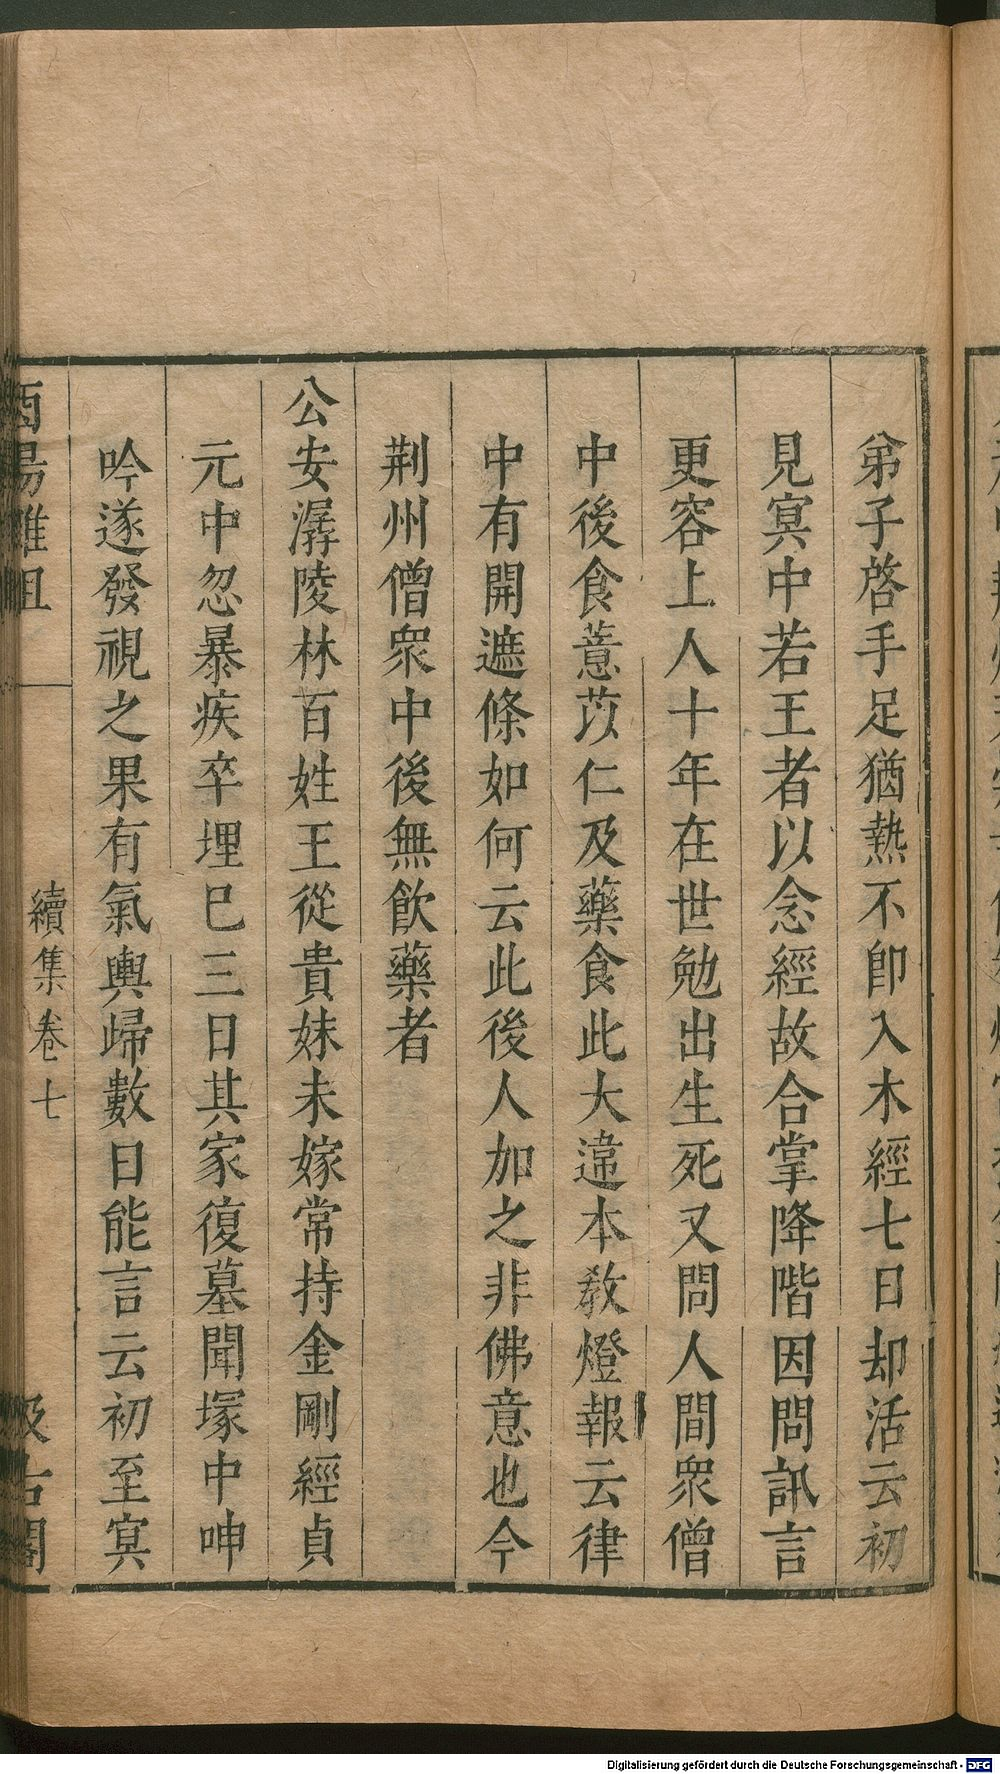 弟子啓手足猶熱不卽入木經七日却活云初
見冥中若王者以念經故合掌降階因問訊言
更容上人十年在世勉出生死又問人間衆僧
中後食薏苡仁及藥食此大違本教燈報云律
中有開遮條如何云此後人加之非佛意也今
荆州僧衆中後無飲藥者
公安潺陵林百姓王從貴妹未嫁常持金剛經貞
元中忽暴疾卒埋巳三日其家復墓聞塚中呻
吟遂發視之果有氣輿歸數日能言云初至冥
酉陽雜俎
續集卷七
汲古閣
Digitalisierung gefördert durch die Deutsche Forschungsgemeinschaft - DFG